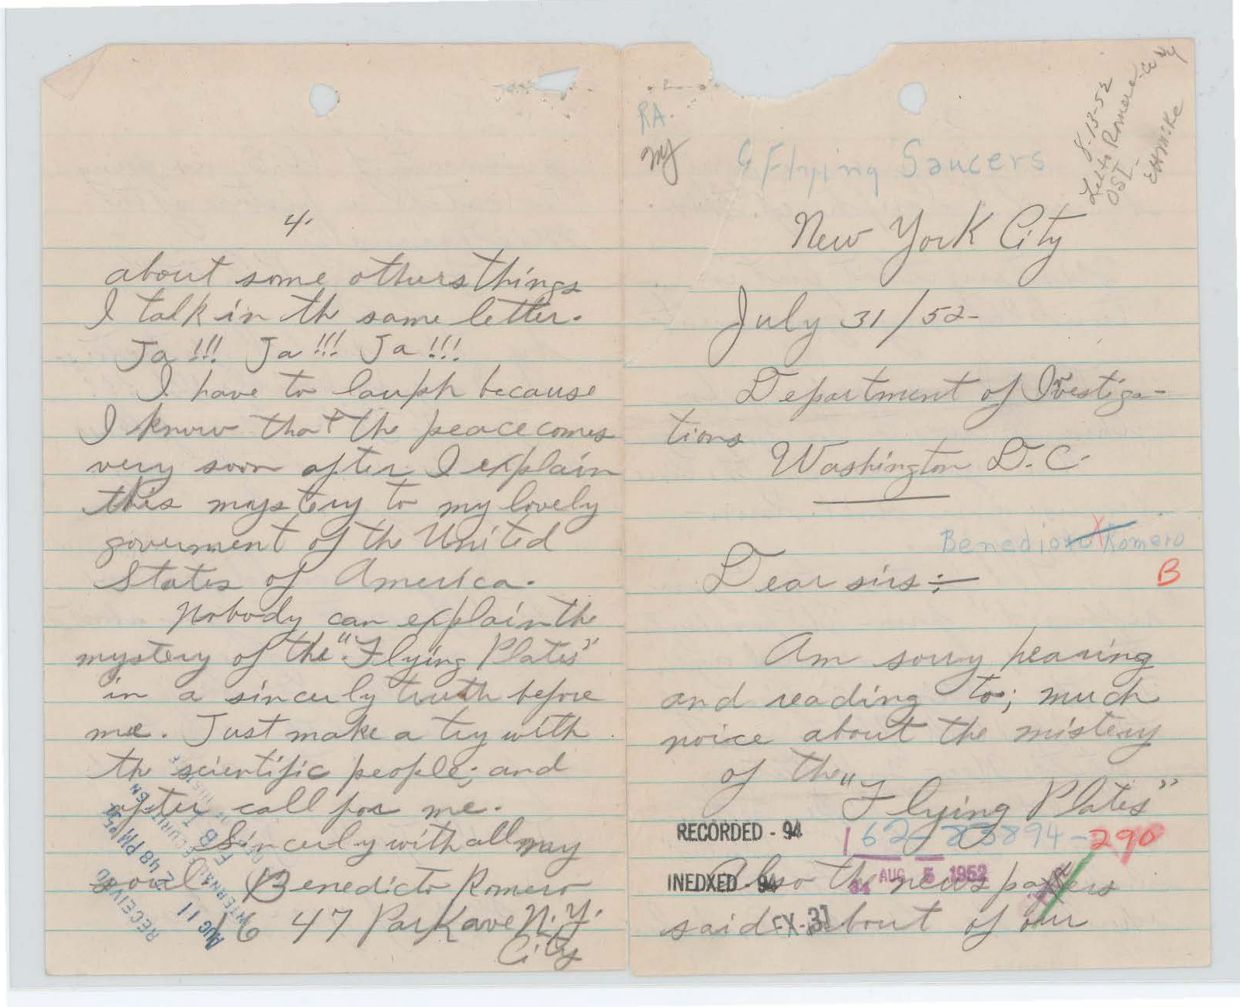 4.
about some others things
I talk in th same letter.
Ja!!! Ja!!! Ja!!!
I have to laugh because
I know that the peace comes
very soon after I explain
this mystery to my lovely
goverment of the United
States of America.
Nobody can explain the
mystery of the "Flying Plates"
in a sincerly truth before
me. Just make a try with
the scientific people; and
after call for me.
Sincerly with all my
soul Benedicto Romero
16 47 Park ave N.Y.
City
RECEIVED
AUG 11 2 48 PM
F B I
RA.
ny
8-13-52
Romero
OSI
Flying Saucers
New York City
July 31/52-
Department of Ivestiga-
tions
Washington D.C.
Benedicto Romero
B
Dear sirs:
Am sorry hearing
and reading to; much
noice about the mistery
of the "Flying Plates"
RECORDED - 94
162-83894-290
INEDXED - 94
34 AUG 5 1952
Also the news papers
said about of our
EX-31